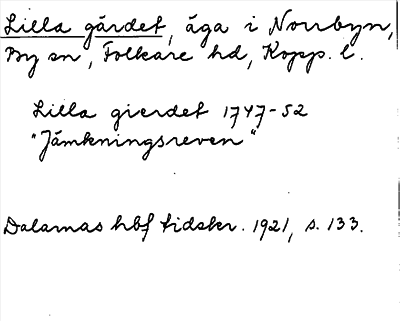 Lilla gärdet, äga i Norrbyn,
By sn, Folkare hd, Kopp. l.
Lilla gierdet 1747-52
"Jämkningsreven"
Dalarnas hbf tidskr. 1921, s. 133.